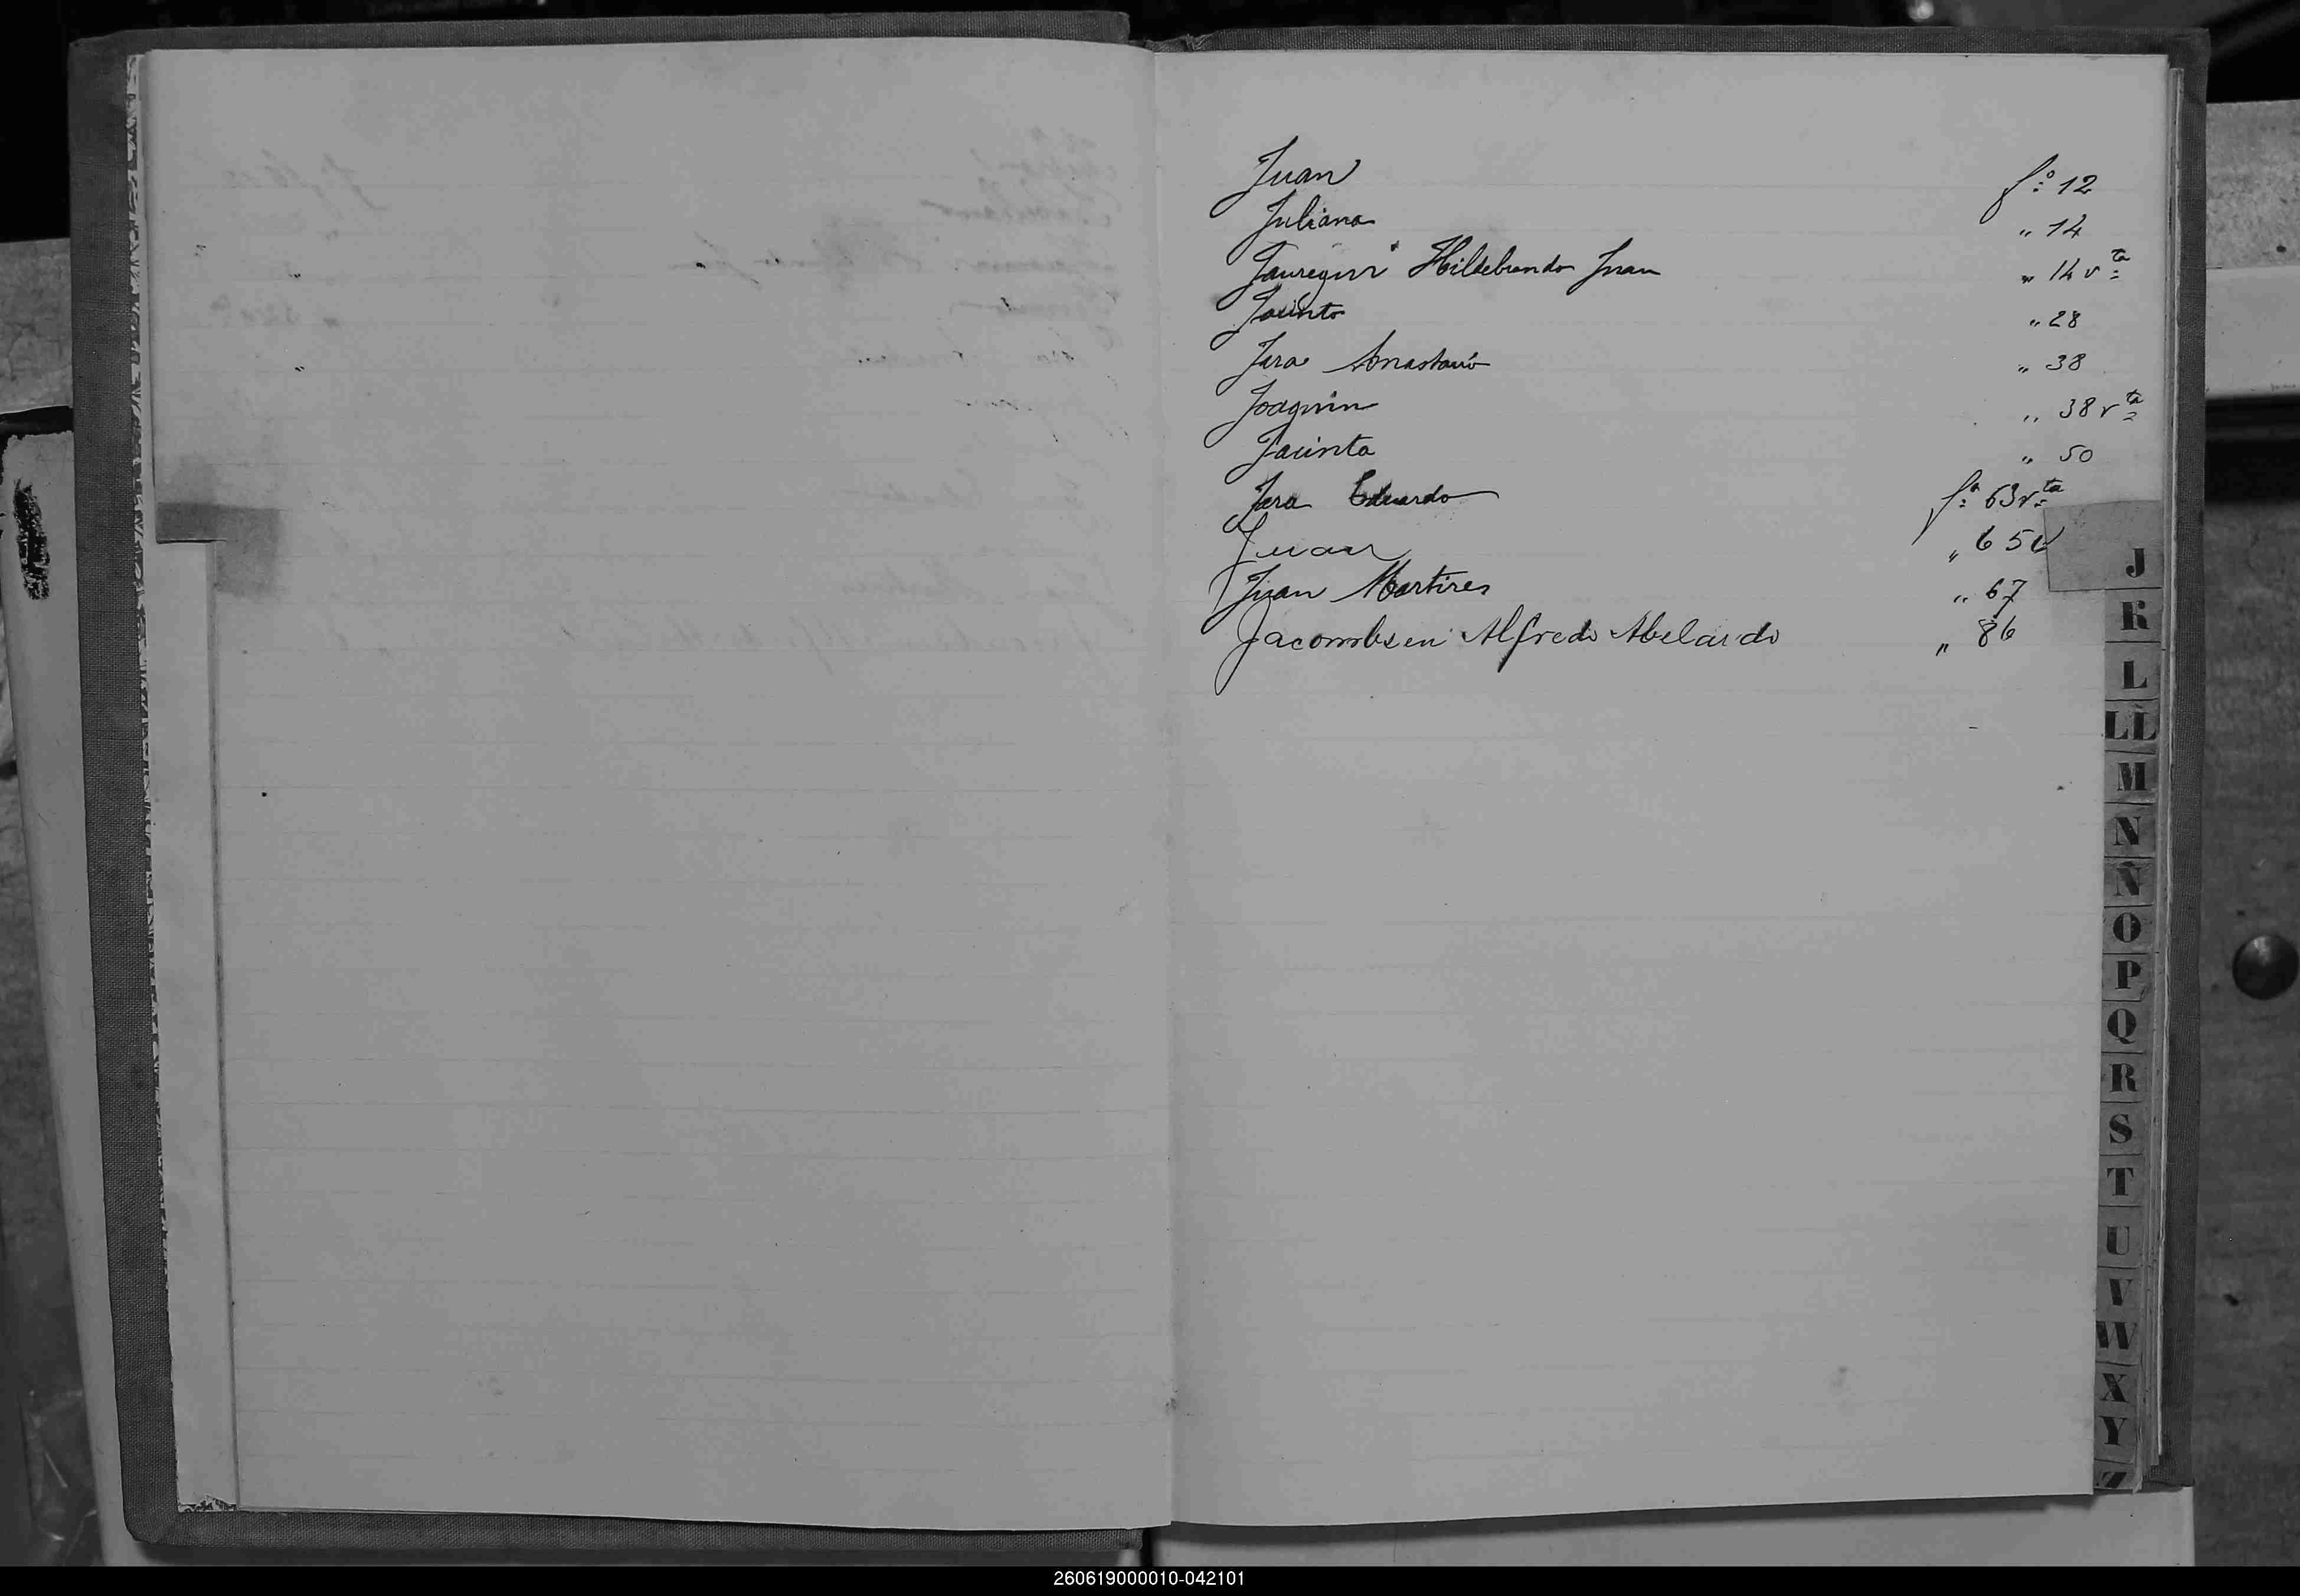 Juan fº 12
Juliana " 14
Jauregui Hildebrando Juan " 14 vta
Jacinto " 28
Jara Anastacio " 38
Joaquin " 38 vta
Jacinta " 50
Jara Eduardo fº 63 vta
Juan " 65 v
Juan Martires " 67
Jacombsen Alfredo Abelardo " 86
J
K
L
LL
M
N
Ñ
O
P
Q
R
S
T
U
V
W
X
Y
Z
260619000010-042101